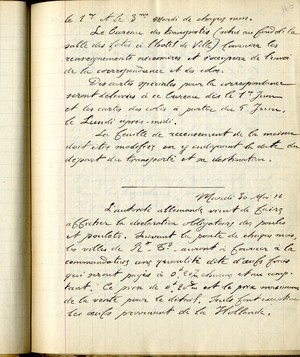 le 1er et le 3me Mardi de chaque mois.
Le bureau des transportés (situé au fond de la
salle des fêtes à l'hôtel de Ville) fournira les
renseignements nécessaires et s'occupera de l'envoi
de la correspondance et des colis.
Des cartes spéciales pour la correspondance
seront délivrées à ce bureau dès le 1er Juin
et les cartes des colis à partir du 5 Juin,
le Lundi après-midi.
La feuille de recensement de la maison
doit être modifiée en y indiquant la date du
départ du transporté et sa destination.
Mardi 30 Mai 16
L'autorité allemande vient de faire
afficher la déclaration obligatoire des poules
et poulets. Suivant la ponte de chaque mois,
les villes de Rx Tg auront à fournir à la
commandature une quantité d'œufs frais
qui seront payés à 0f 20 chacun et au comp-
tant. Ce prix de 0f 20 est le prix maximum
de la vente pour le détail. Seuls font exception
les œufs provenant de la Hollande.